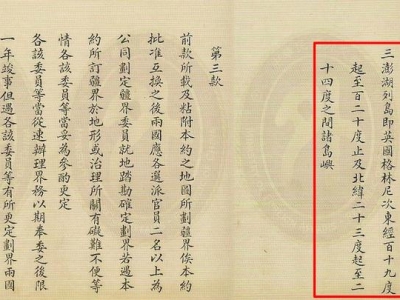 三澎湖列島即英國格林尼次東經百十九度
起至百二十度止及北緯二十三度起至二
十四度之間諸島嶼
第三款
前款所載及粘附本約之地圖所劃疆界俟本約
批准互換之後兩國應各選派官員二名以上為
公同劃定疆界委員就地踏勘確定劃界若遇本
約所訂疆界於地形或治理所關有礙難不便等
情各該委員等當妥為參酌更定
各該委員等當從速辦理界務以期奉委之後限
一年竣事但遇各該委員等有所更定劃界兩國